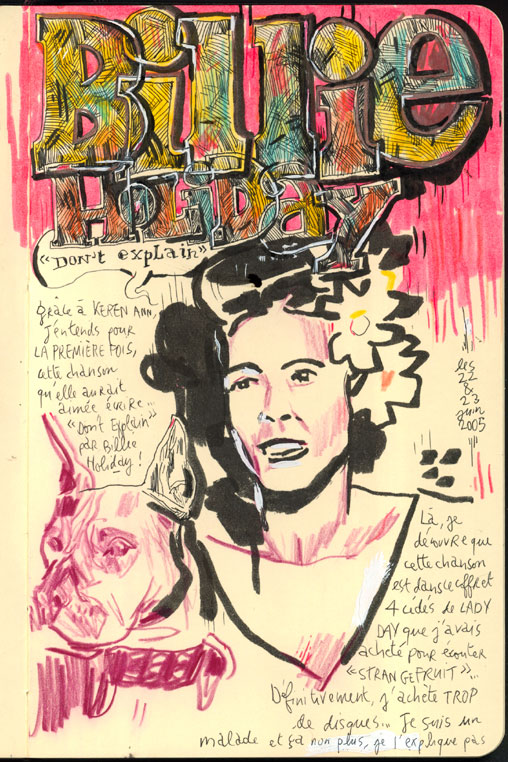 Billie
HOLiDAY
«DON't expLain»
grâce à KEREN ANN,
j'entends pour
LA PREMIÈRE FOIS,
cette chanson
qu'elle aurait
aimée écrire...
«Don't Explain»
par Billie
Holiday !
les
22
&
23
juin
2005
Là, je
découvre que
cette chanson
est dans le coffret
4 cédés de LADY
DAY que j'avais
acheté pour écouter
«STRANGE FRUIT»...
Définitivement, j'achète TROP
de disques... Je suis un
malade et ça non plus, je l'explique pas